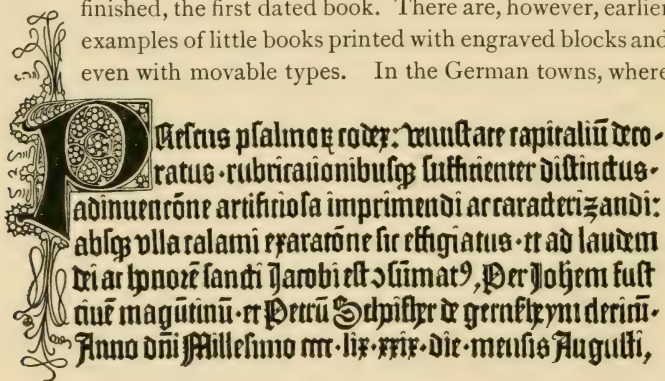 finished, the first dated book. There are, however, earlier
examples of little books printed with engraved blocks and
even with movable types. In the German towns, where
PResens psalmoꝝ codex: venustate capitaliū deco-
ratus·rubricationibusqꝫ sufficienter distinctus·
adinuencōne artificiosa imprimendi ac caracterizandi:
absqꝫ vlla calami exaracōne sic effigiatus·et ad laudem
dei ac honorē sancti Jacobi est ↄsūmatꝰ, Per Johēm fust
ciuē magūtinū·et Petrū Schoiffher de gernssheym clericū·
Anno dn̄i Millesimo cccc·lix·xxix·die·mensis Augusti,